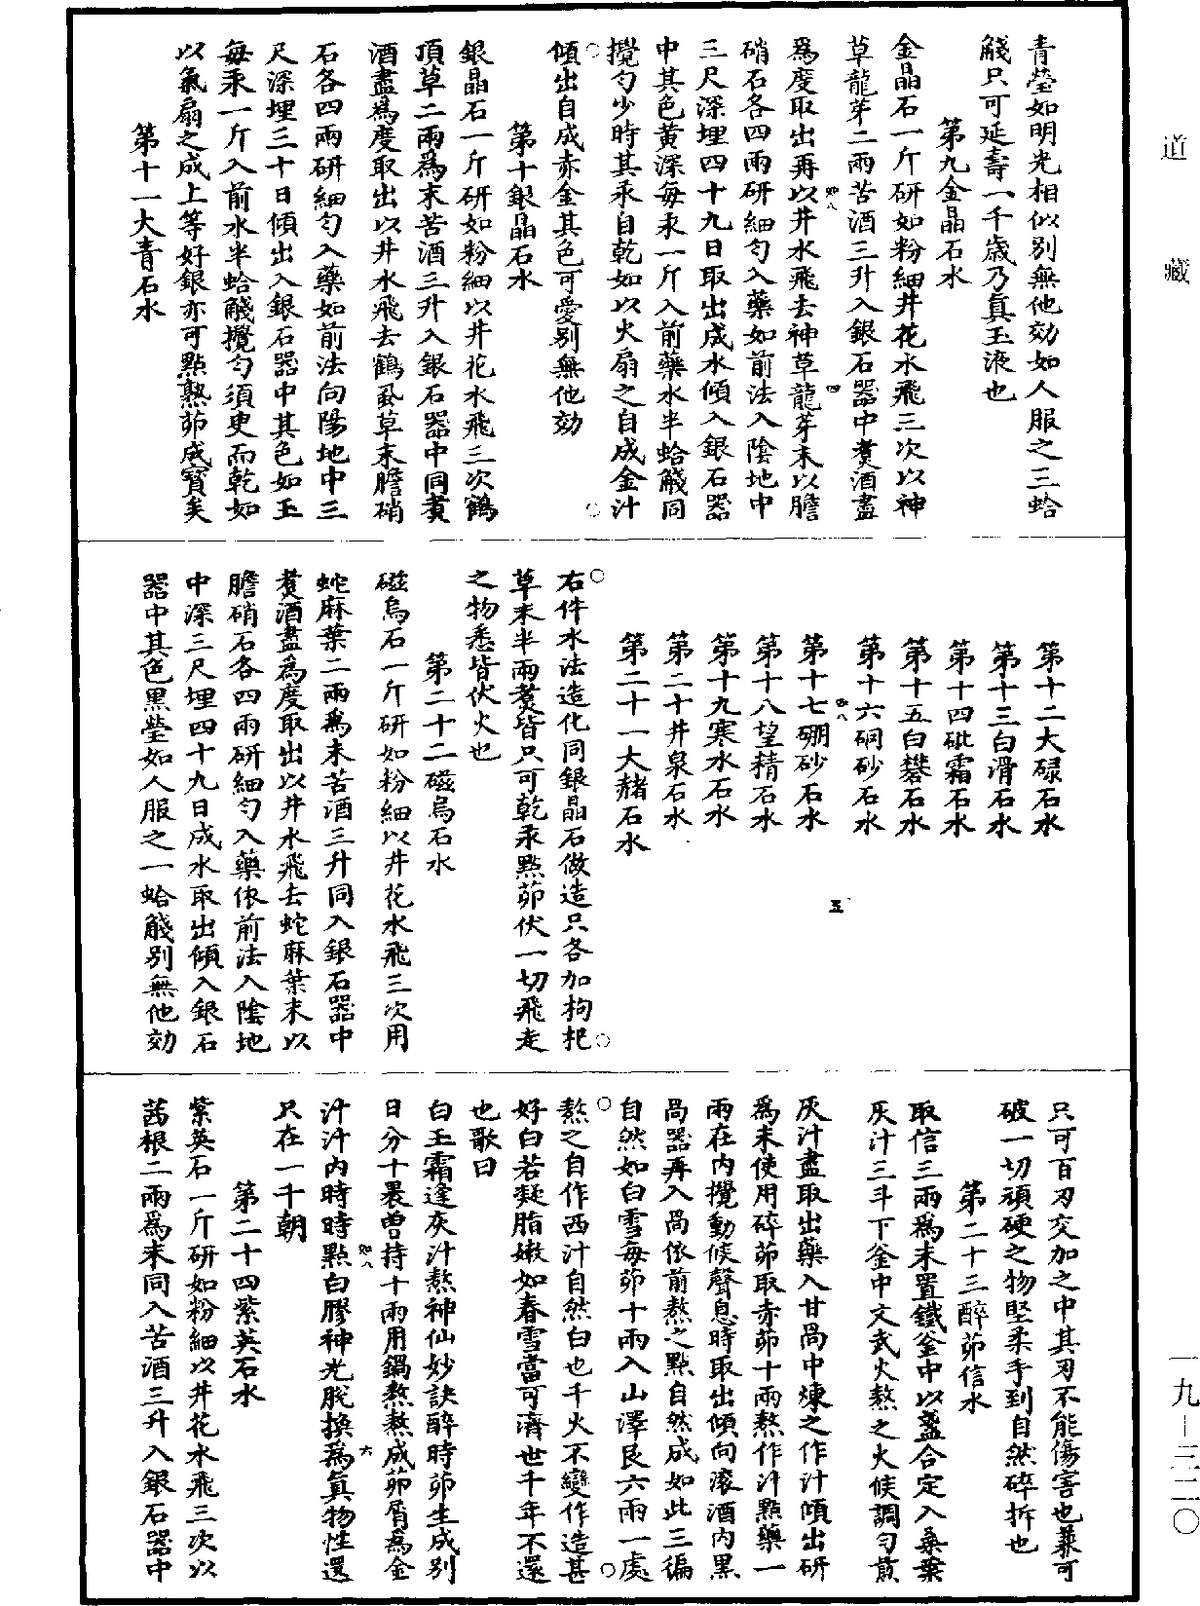 道藏
青瑩如明光相似別無他効如人服之三蛤
觮只可延壽一千歲乃真玉液也
第九金晶石水
金晶石一斤研如粉細井花水飛三次以神
草龍芽二兩苦酒三升入銀石器中煑酒盡
為度取出再以井水飛去神草龍芽末以膽
硝石各四兩研細勻入藥如前法入陰地中
三尺深埋四十九日取出成水傾入銀石器
中其色黃深每汞一斤入前藥水半蛤觮同
攪勻少時其汞自乾如以火扇之自成金汁
傾出自成赤金其色可愛別無他効
第十銀晶石水
銀晶石一斤研如粉細以井花水飛三次鶴
頂草二兩為末苦酒三升入銀石器中同煑
酒盡為度取出以井水飛去鶴虱草末膽硝
石各四兩研細勻入藥如前法向陽地中三
尺深埋三十日傾出入銀石器中其色如玉
每汞一斤入前水半蛤觮攪勻須臾而乾如
以氣扇之成上等好銀亦可點熟茆成寶矣
第十一大青石水
第十二大碌石水
第十三白滑石水
第十四砒霜石水
第十五白礬石水
第十六硇砂石水
五
第十七硼砂石水
第十八望精石水
第十九寒水石水
第二十井泉石水
第二十一大赭石水
右件水法造化同銀晶石做造只各加枸杞
草末半兩煑皆只可乾汞點茆伏一切飛走
之物悉皆伏火也
第二十二磁烏石水
磁烏石一斤研如粉細以井花水飛三次用
蛇麻葉二兩為末苦酒三升同入銀石器中
煑酒盡為度取出以井水飛去蛇麻葉末以
膽硝石各四兩研細勻入藥依前法入陰地
中深三尺埋四十九日成水取出傾入銀石
器中其色黑瑩如人服之一蛤觮別無他効
只可百刃交加之中其刃不能傷害也兼可
破一切頑硬之物堅柔手到自然碎折也
第二十三醉茆信水
取信三兩為末置鐵釜中以盞合定入桑葉
灰汁三斗下釜中文武火熬之火候調勻煎
灰汁盡取出藥入甘鍋中煉之作汁傾出研
為末使用碎茆取赤茆十兩熬作汁點藥一
兩在內攪動候聲息時取出傾向滚酒內黑
鍋器再入鍋依前熬之點自然成如此三徧
自然如白雪每茆十兩入山澤艮六兩一處
熬之自作西汁自然白也千火不變作造甚
好白若凝脂嫩如春雪當可濟世千年不還
也歌曰
白玉霜逢灰汁熬神仙妙訣醉時茆生成別
日分十裹曽持十兩用鍋熬熬成茆屑為金
汁汁內時時點白膠神光脫換為真物性還
只在一千朝
第二十四紫英石水
紫英石一斤研如粉細以井花水飛三次以
茜根二兩為末同入苦酒三升入銀石器中
一九－三二〇